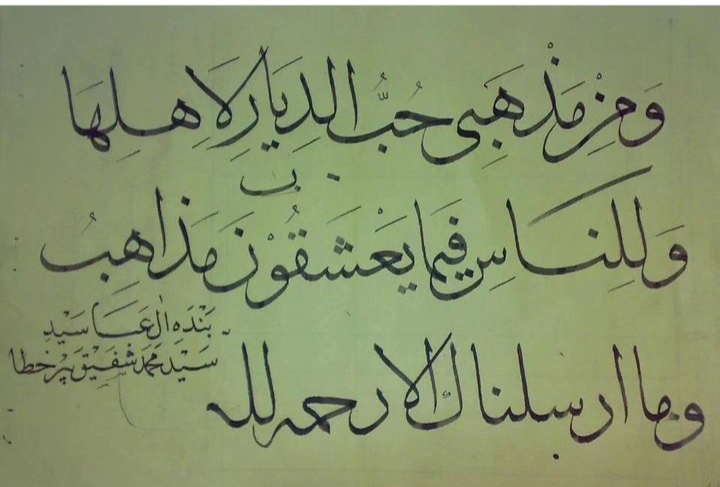 وَمِنْ مَذْهَبِي حُبُّ الدِيَارِ لِاَهِلِهَا
وَلِلِنَاسِ فِيمَا يَعْشَقُوْنَ مَذَاهِبُ
بَنْدَهِ اٰل عَبَا سَيّدِ
سَيّدِ مُحَمَّد شَفِيْق پُر خطا
وما ارسلناك الا رحمه لل